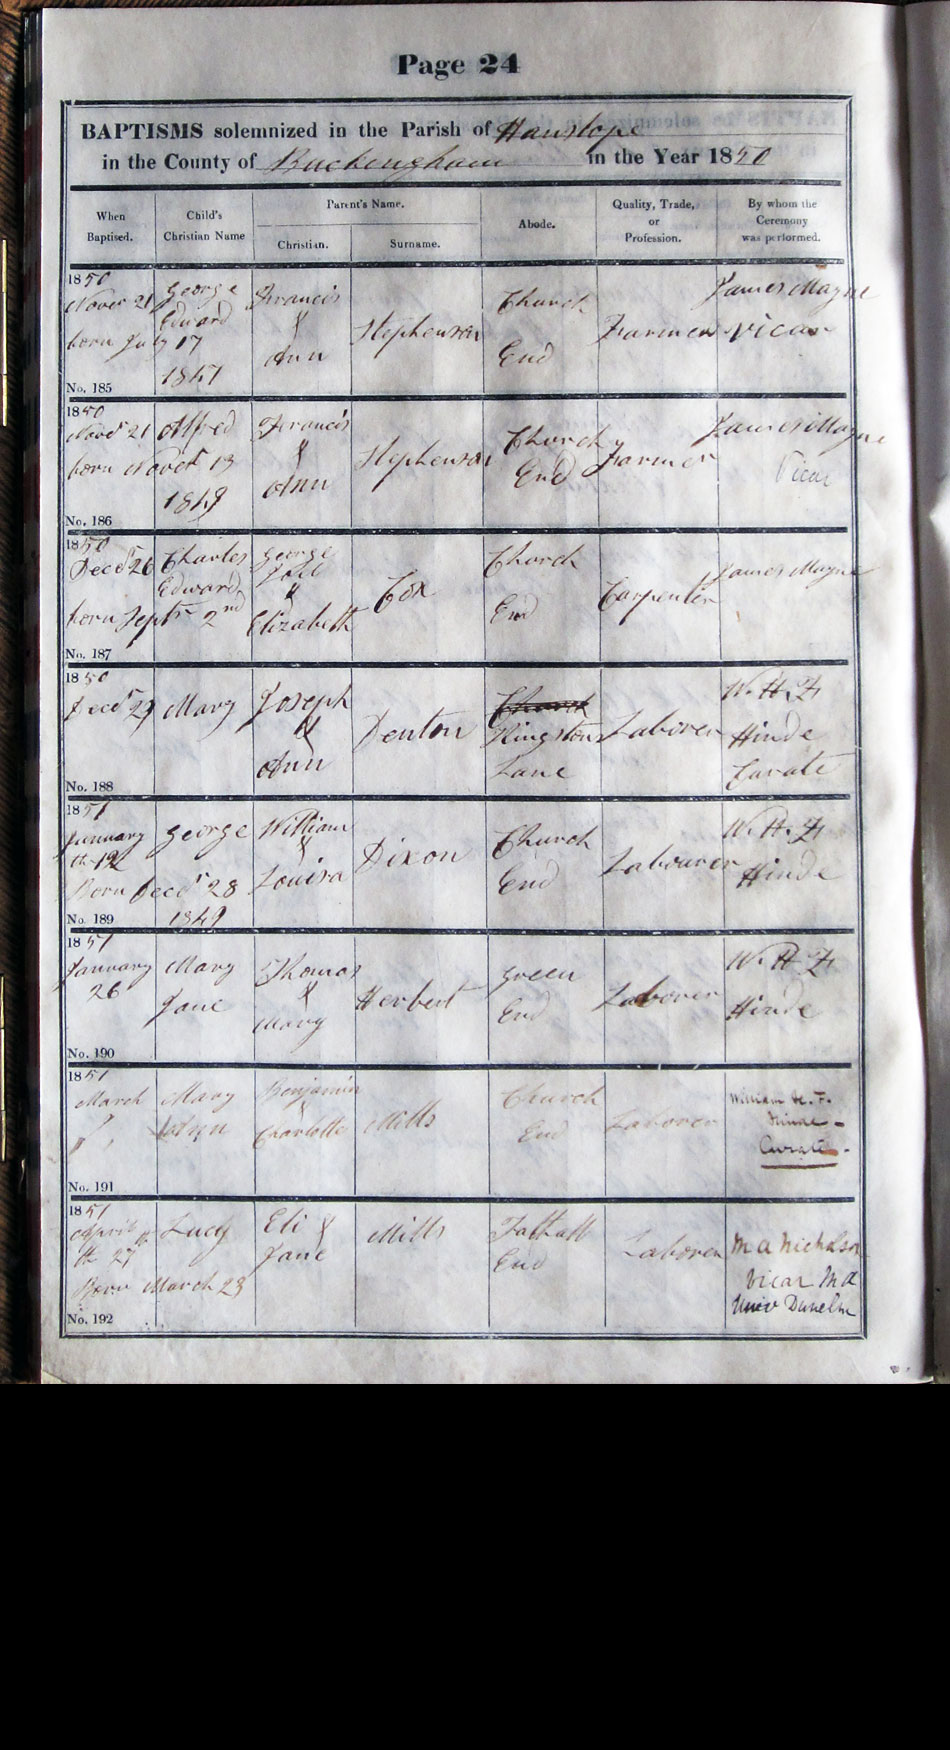 Page 24
BAPTISMS solemnized in the Parish of Hanslope
in the County of Buckingham in the Year 1850
When Baptised. Child's Christian Name Parent's Name. Christian. Surname. Abode. Quality, Trade, or Profession. By whom the Ceremony was performed.
1850
Novr 21 George Francis Church James Mayne
Edward & Stephenson Farmer Vicar
born July 17 Ann End
1847
No. 185
1850
Novr 21 Alfred Francis Church James Mayne
born Novr 13 & Stephenson End Farmer Vicar
1849 Ann
No. 186
1850
Decr 26 Charles George Church James Mayne
Edward & Cox Carpenter
born Septr 2nd Elizabeth End
No. 187
1850
Decr 29 Mary Joseph Church W. H. F.
& Denton Kingstons Laborer Hinde
Ann Lane Curate
No. 188
1851
January George William Church W. H. F.
th 12 & Dixon Labourer Hinde
Born Decr 28 Louisa End
1849
No. 189
1851
January Mary Thomas Green W. H. F.
26 & Herbert Laborer
Jane Mary End Hinde
No. 190
1851
March Mary Benjamin Church William H. F.
Ann & Mills Laborer Hinde
Charlotte End Curate
No. 191
1851
April Lucy Eli & Mills Tathall Laborer M A Nicholson
th 27 Jane End Vicar M A
Born March 23 Univ Dunelm
No. 192